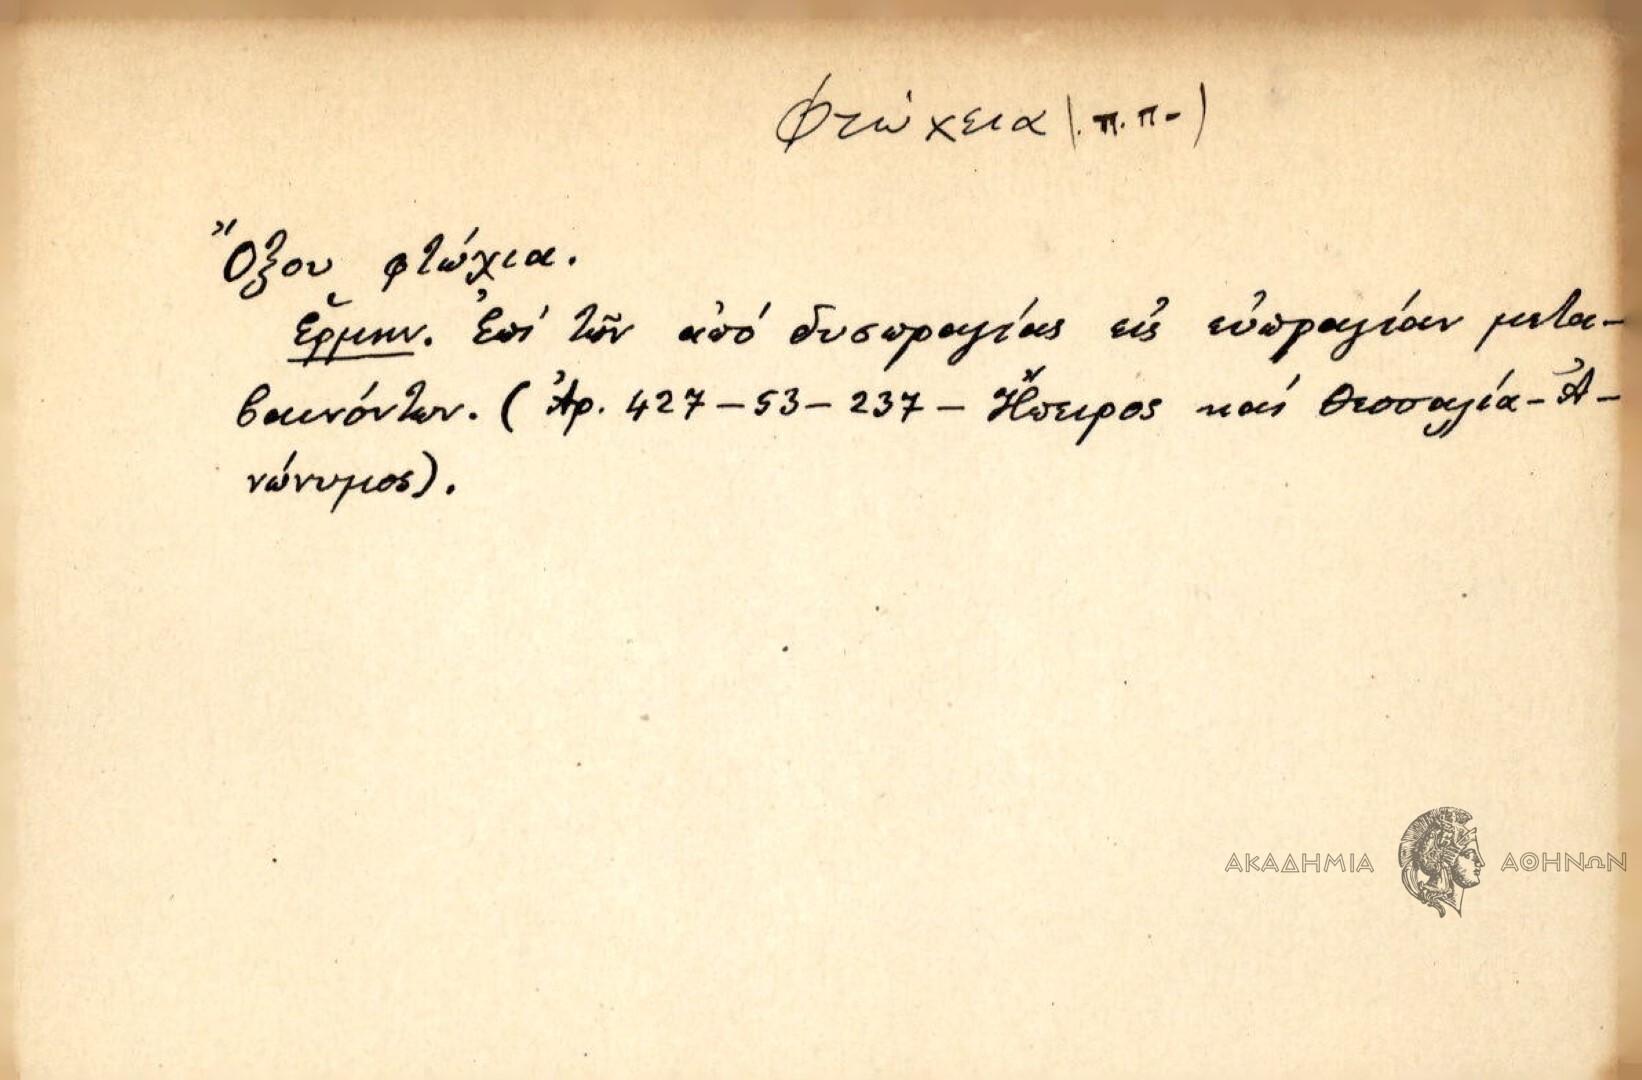 Φτώχεια (π.π.)
Ὄξου φτώχια.
Ἑρμην. Ἐπί τῶν ἀπό δυσπραγίας εἰς εὐπραγίαν μετα-
βαινόντων. (Ἀρ. 427-53-237- Ἤπειρος καί Θεσσαλία-Ἀ-
νώνυμος).
ΑΚΑΔΗΜΙΑ ΑΘΗΝΩΝ